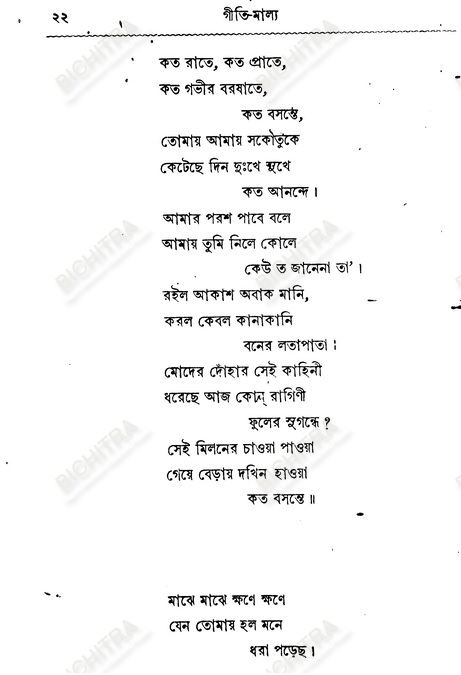 ২২ গীতি-মাল্য
কত রাতে, কত প্রাতে,
কত গভীর বরষাতে,
কত বসন্তে,
তোমায় আমায় সকৌতুকে
কেটেছে দিন দুঃখে সুখে
কত আনন্দে।
আমার পরশ পাবে বলে
আমায় তুমি নিলে কোলে
কেউ ত জানেনা তা’।
রইল আকাশ অবাক মানি,
করল কেবল কানাকানি
বনের লতাপাতা।
মোদের দোঁহার সেই কাহিনী
ধরেছে আজ কোন্ রাগিণী
ফুলের সুগন্ধে?
সেই মিলনের চাওয়া পাওয়া
গেয়ে বেড়ায় দখিন হাওয়া
কত বসন্তে॥
মাঝে মাঝে ক্ষণে ক্ষণে
যেন তোমায় হল মনে
ধরা পড়েছ।
BICHITRA
BICHITRA
BICHITRA
BICHITRA
BICHITRA
BICHITRA
BICHITRA
BICHITRA